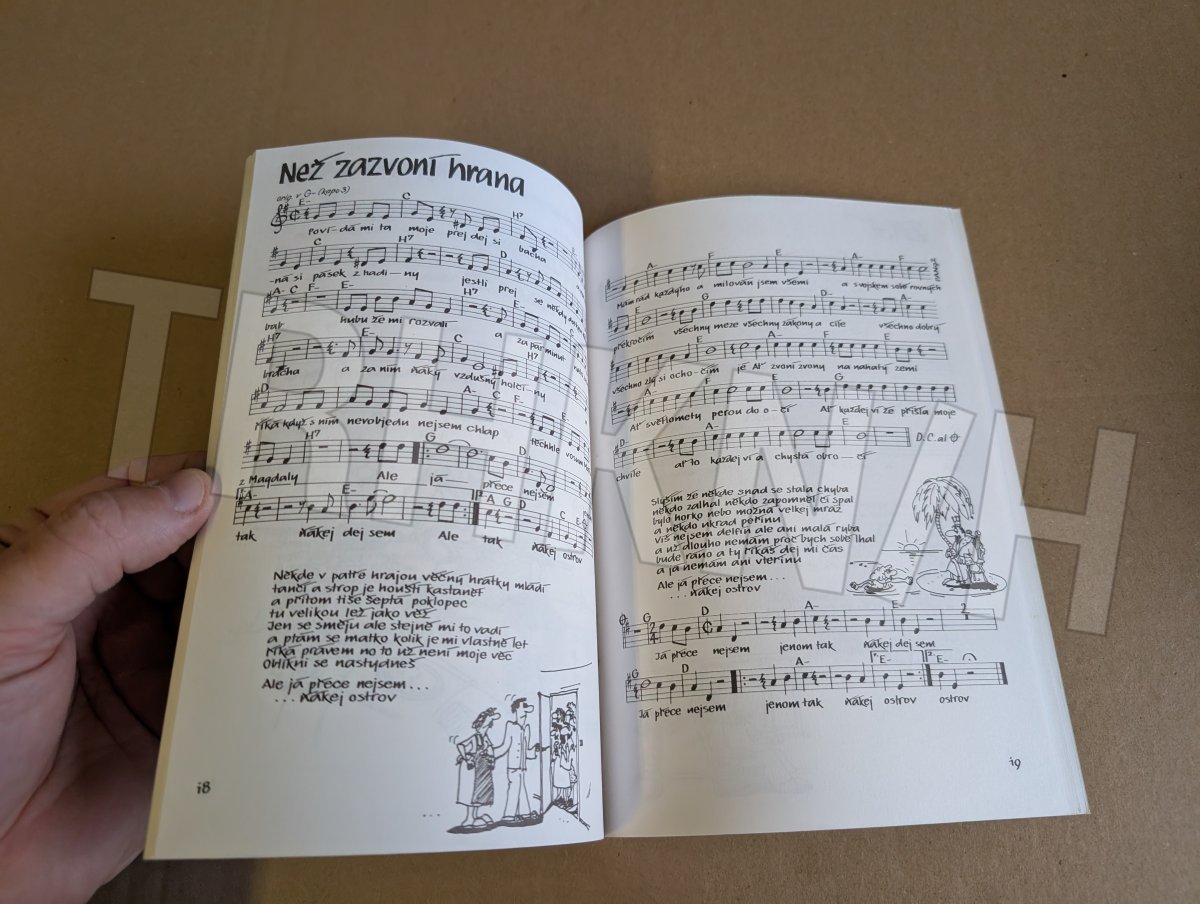 Než zazvoní hrana
orig. v G- (kapo 3)
E- C H7
Poví-dá mi ta moje prej dej si bacha
C H7 D
-ná si pásek z hadi-ny jestli prej se někdy
A- C F- E- H7
babr hubu že mi rozvalí a za pár minut
H7 E- C H7
brácha a za ním ňáký vzdušný holči-ny
D A- C F- E
Říká když s ním nevobjedu nejsem chlap těchhle vosum
H7 G D
z Magdaly Ale já přece nejsem
A- E- A G D C E-
tak ňákej dej sem Ale tak ňákej ostrov
Někde v patře hrajou věčný hrátky mládí
tančí a strop je houští kastanět
a přitom tiše šeptá poklopec
tu velikou lež jako věž
Jen se směju ale stejně mi to vadí
a ptám se matko kolik je mi vlastně let
Říká právem no to už není moje věc
Oblíkni se nastydneš
Ale já přece nejsem...
...ňákej ostrov
18
A- F E A- F
Mám rád každýho a milován jsem všemi a s vojskem sobě rovných
E G D- A-
překročím všechny meze všechny zákony a cíle všechno dobrý
E A- F E
všechno zlý si ocho-čím je Ať zvoní zvony na nahatý zemi
A- F E G
Ať světlomety perou do o-čí Ať každej ví že přišla moje
D- A- E D.C. al
chvíle ať to každej ví a chystá obro-čí
Slyším že někde snad se stala chyba
někdo zalhal někdo zapomněl či spal
bylo horko nebo možná velkej mráz
a někdo ukrad peřinu
Víš nejsem delfín ale ani malá ryba
a už dlouho nemám proč bych sobě lhal
bude ráno a ty říkáš dej mi čas
a já nemám ani vteřinu
Ale já přece nejsem...
...ňákej ostrov
G D A- E- 2
Já přece nejsem jenom tak ňákej dej sem
G D A- 1 E- 2 E-
Já přece nejsem jenom tak ňákej ostrov ostrov
19
TRHKNIH